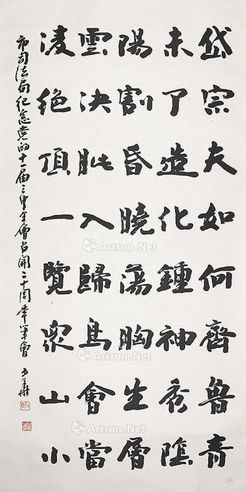 岱宗夫如何齊魯青
未了造化鍾神秀陰
陽割昏曉盪胸生層
雲決眦入歸鳥會當
凌絕頂一覽眾山小
市司法局纪念党的十一届三中全會召開三十周年筆會
Artron.Net